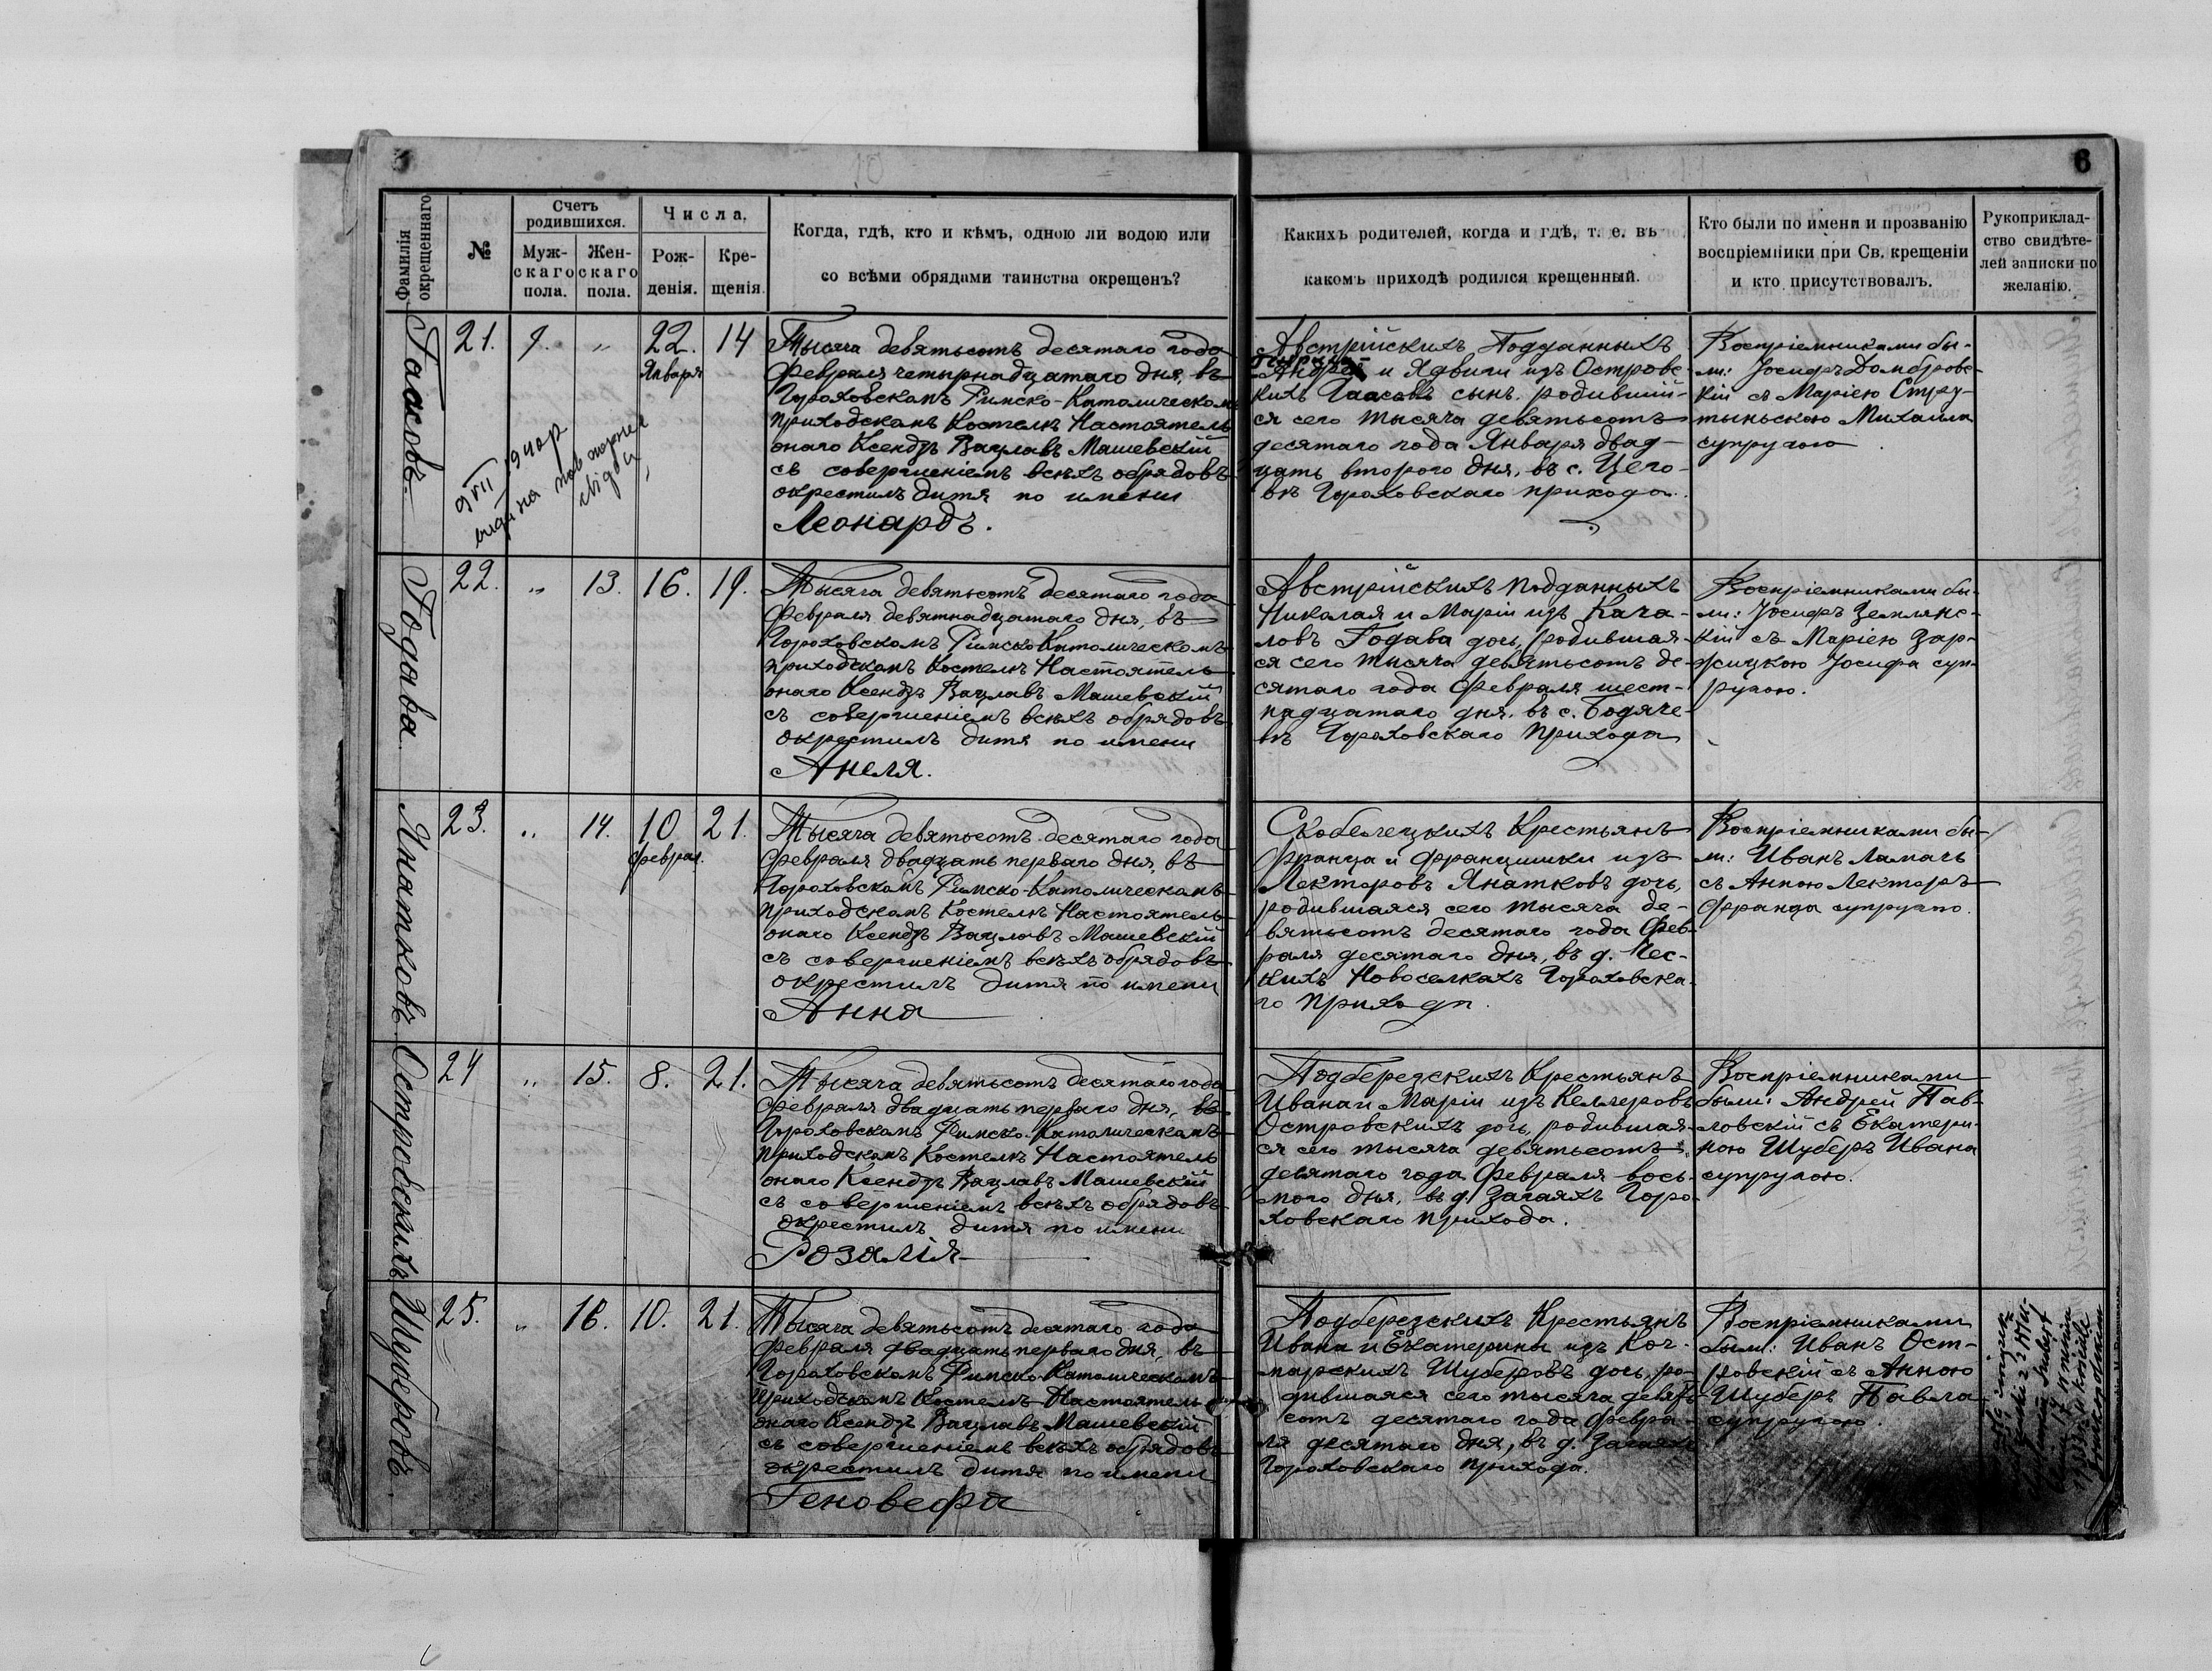 6
Фамилія
окрещеннаго
№
Счетъ
родившихся.
Муж-
скаго
пола.
Жен-
скаго
пола.
Числа.
Рож-
денія.
Кре-
щенія.
Когда, гдѣ, кто и кѣмъ, одною ли водою или
со всѣми обрядами таинства окрещенъ?
Какихъ родителей, когда и гдѣ, т. е. въ
какомъ приходѣ родился крещенный.
Кто были по имени и прозванію
воспріемники при Св. крещеніи
и кто присутствовалъ.
Рукоприклад-
ство свидѣте-
лей записки по
желанію.
Гаасовъ.
21.
"
22.
Января
14
9 VII 1940 р
Тысяча девятьсотъ десятаго года
Февраля четырнадцатаго дня, въ
Гороховскомъ Римско-Католическомъ
приходскомъ Костелѣ Настоятель
онаго Ксендзъ Вацлавъ Машевскій
съ совершеніемъ всѣхъ обрядовъ
окрестилъ дитя по имени
Леонардъ.
Австрійскихъ Подданныхъ
и Ядвиги изъ Островс-
кихъ Гаасовъ сынъ, родившій-
ся сего тысяча девятьсотъ
десятаго года Января двад-
цать второго дня, въ с. Цего-
вѣ Гороховскаго прихода.
Воспріемниками бы-
ли: Іосифъ Домбровс-
кій съ Маріею Стру-
тыньскою Михаила
супругою
Годава.
22.
"
13.
16.
19.
Тысяча девятьсотъ десятаго года
Февраля девятнадцатаго дня, въ
Гороховскомъ Римско-Католическомъ
приходскомъ Костелѣ Настоятель
онаго Ксендзъ Вацлавъ Машевскій
съ совершеніемъ всѣхъ обрядовъ
окрестилъ дитя по имени
Анеля.
Австрійскихъ подданныхъ
Николая и Маріи изъ Кача-
ловъ Годава дочь, родившая-
ся сего тысяча девятьсотъ де-
сятаго года Февраля шест-
надцатаго дня, въ с. Бодяче-
вѣ Гороховскаго Прихода
Воспріемниками бы-
ли: Іосифъ Землянс-
кій съ Маріею Зар-
жицкою Іосифа суп-
ругою.
Янатковъ
23.
"
14.
10
Феврал.
21.
Тысяча девятьсотъ десятаго года
Февраля двадцать перваго дня, въ
Гороховскомъ Римско-Католическомъ
приходскомъ Костелѣ Настоятель
онаго Ксендзъ Вацлавъ Машевскій
съ совершеніемъ всѣхъ обрядовъ
окрестилъ дитя по имени
Анна
Скобелецкихъ Крестьянъ
Франца и Францишки изъ
Лекторовъ Янатковъ дочь,
родившаяся сего тысяча де-
вятьсотъ десятаго года Фев-
раля десятаго дня, въ д. Чес-
кихъ Новоселкахъ Гороховска-
го прихода.
Воспріемниками бы-
ли: Иванъ Ламачъ
съ Анною Лекторъ
Франца супругою.
Островскихъ
24
"
15.
8.
21.
Тысяча девятьсотъ десятаго года
Февраля двадцать перваго дня, въ
Гороховскомъ Римско-Католическомъ
приходскомъ Костелѣ Настоятель
онаго Ксендзъ Вацлавъ Машевскій
съ совершеніемъ всѣхъ обрядовъ
окрестилъ дитя по имени
Розалія
Подберезскихъ Крестьянъ
Ивана и Маріи изъ Келлеровъ
Островскихъ дочь, родившая-
ся сего тысяча девятьсотъ
десятаго года Февраля вось-
мого дня, въ д. Загаяхъ Горо-
ховскаго прихода.
Воспріемниками
были: Андрей Пав-
ловскій съ Екатери-
ною Шуберъ Ивана
супругою.
Шуберовъ.
25.
"
16.
10.
21.
Тысяча девятьсотъ десятаго года
Февраля двадцать перваго дня, въ
Гороховскомъ Римско-Католическомъ
приходскомъ Костелѣ Настоятель
онаго Ксендзъ Вацлавъ Машевскій
съ совершеніемъ всѣхъ обрядовъ
окрестилъ дитя по имени
Геновефа
Подберезскихъ Крестьянъ
Ивана и Екатерины изъ Коч-
марскихъ Шуберовъ дочь, ро-
дившаяся сего тысяча девять-
сотъ десятаго года Февра-
ля десятаго дня, въ д. Загаяхъ
Гороховскаго прихода.
Воспріемниками
были: Иванъ Ост-
ровскій съ Анною
Шуберъ Павла
супругою.